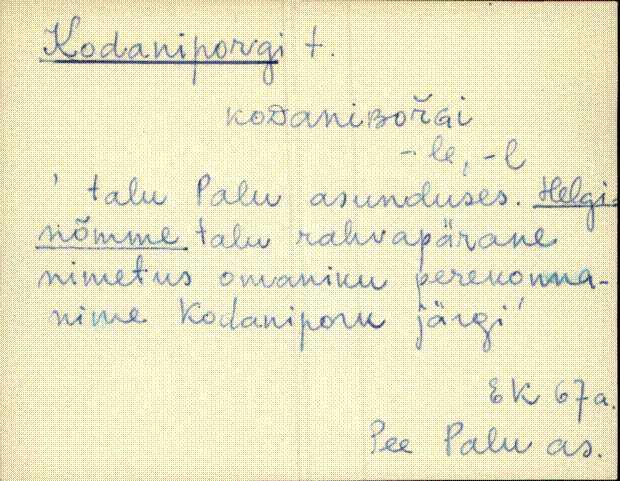 Kodaniporgi t.
koᴅaniʙoŕɢi
-le, -l
' talu Palu asunduses. Helgi-
nõmme talu rahvapärane
nimetus omaniku perekonna-
nime Kodanipork järgi'
EK 67 a.
Pee Palu as.